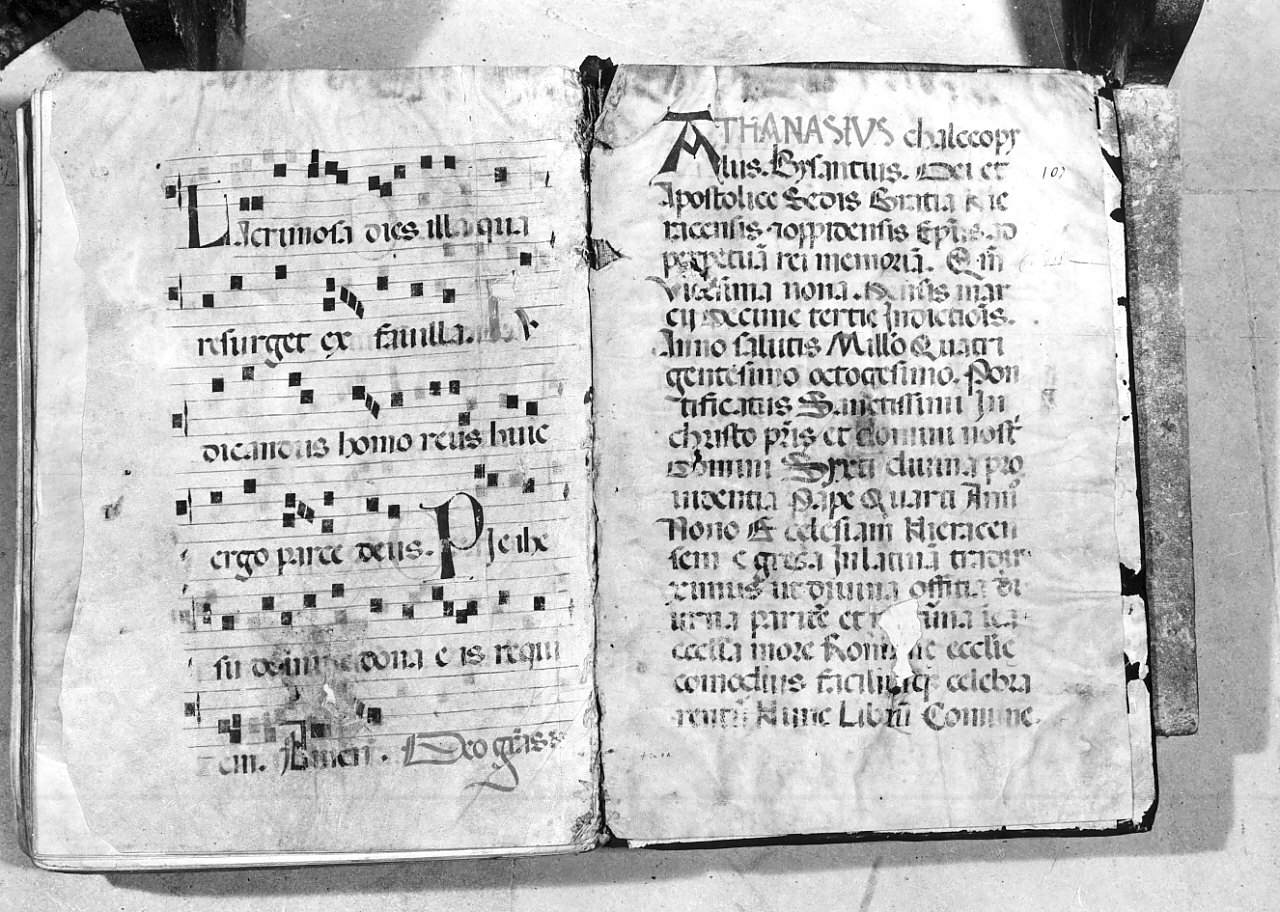 Lacrimosa dies illa qua
resurget ex favilla. Iu
dicandus homo reus huic
ergo parce deus. Pie ihe
su domine dona e is requi
em. Amen. Deo grãs
ATHANASIVS chalceopy
lus. Bysantius. Dei et
107
Apostolice Sedis Gratia Hie
racensis ⁊ oppidensis Ep̃us. ad
perpetuã rei memoriã. E m̃
Vicesima nona. Mensis mar
cij Decime tertie Indictiõis.
Anno salutis Millo Quatri
gentesimo octogesimo. Pon
tificatus Sanctissimi In
christo p̃ris et domini nost̃
Domini Syxti divina pro
videntia Pape Quarti Anñ
Nono E cclesiam Hieracen
sem e greca In latinã tradu
ximus ut divina offitia di
urna paritẽ et
ecclia more Romane ecclie
comodius facilius celebra
rentũ Hunc Librũ Comune.